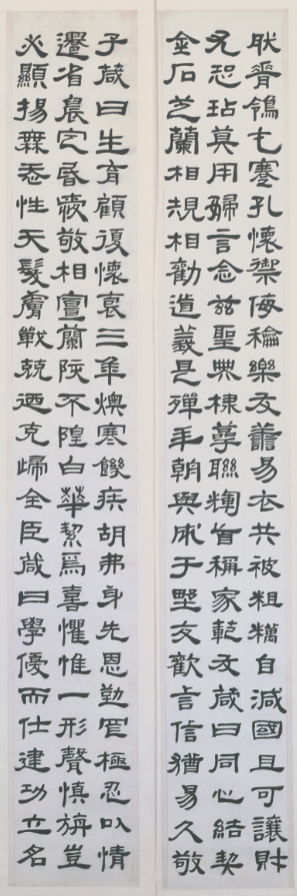 脊鴒蹇孔懷禦侮龢樂友讓易衣共被粗糲自減國且可讓財
玷莫用婦言念茲聖典棣萼聯皆稱家範友箴曰同心結契
金石芝蘭相規相勸道義是殫與成于堅友歡言信猶易久敬
子箴曰生育顧復懷哀三年燠寒饑疾胡弗身先恩勤罔極忍以情
遷省晨定昏愛敬相宣蘭陔不隍白華絜爲喜懼惟一形聲慎旃豈
必顯揚無忝性天髮膚戰兢迺克歸全臣箴曰學優而仕建功立名